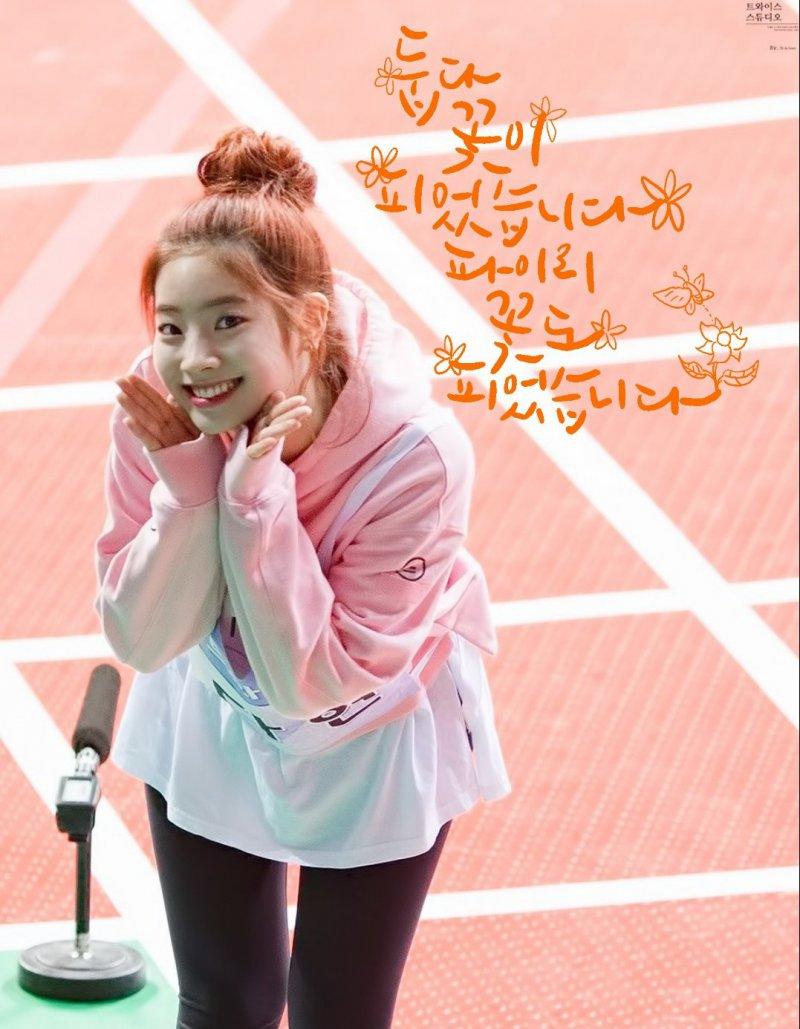 트와이스
스튜디오
둡다
꽃이
피었습니다
파이리
꽃도
피었습니다